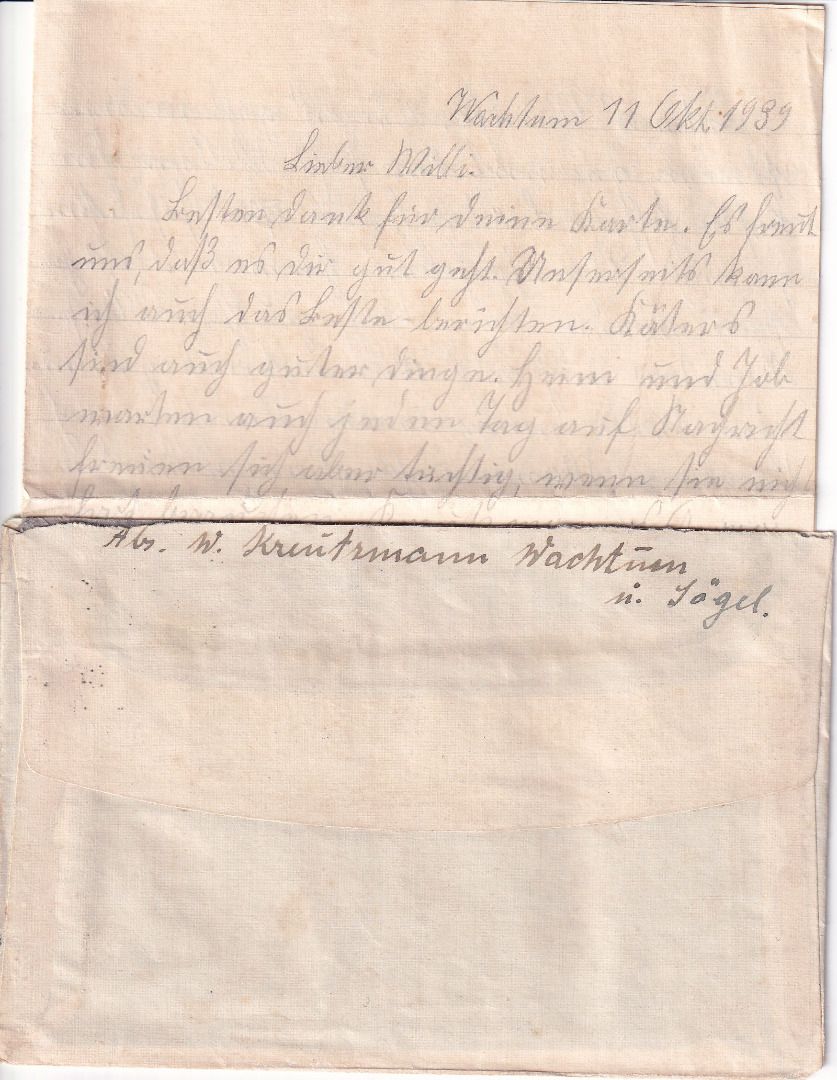 Wachtum 11 Okt. 1939
Lieber Willi.
Besten dank für deine Karte. Es freut
uns, daß es dir gut geht. Unserseits kann
ich auch das Beste berichten. Käters
sind auch guter dinge. Heini und Job
warten auch jeden Tag auf Nachricht
freuen sich aber tüchtig, wenn sie nicht
Abs. W. Kreutzmann Wachtum
ü. Sögel.